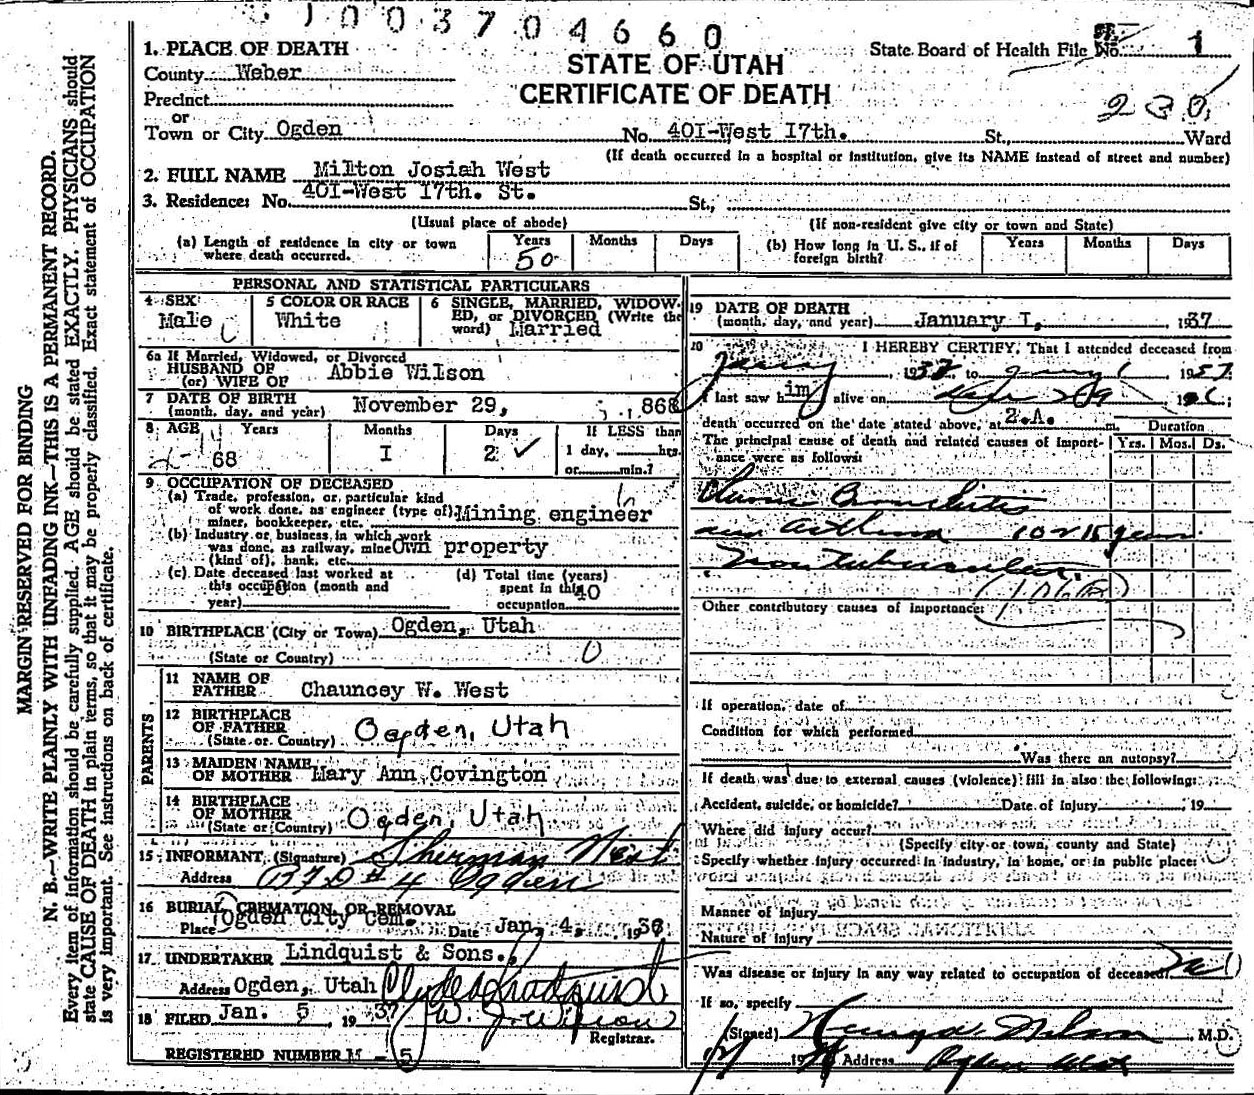 1003704660
1. PLACE OF DEATH
County Weber
Precinct
or
Town or City Ogden No. 40I-West I7th. St., Ward
STATE OF UTAH
CERTIFICATE OF DEATH
State Board of Health File No. 1
230
(If death occurred in a hospital or institution, give its NAME instead of street and number)
2. FULL NAME Milton Josiah West
3. Residence: No. 40I-West I7th. St. St.,
(Usual place of abode) (If non-resident give city or town and State)
(a) Length of residence in city or town where death occurred. Years 50 Months Days
(b) How long in U. S., if of foreign birth? Years Months Days
PERSONAL AND STATISTICAL PARTICULARS
4 SEX Male
5 COLOR OR RACE White
6 SINGLE, MARRIED, WIDOWED, or DIVORCED (Write the word) Married
6a If Married, Widowed, or Divorced
HUSBAND OF
(or) WIFE OF Abbie Wilson
7 DATE OF BIRTH
(month, day, and year) November 29, 868
8 AGE Years Months Days If LESS than
68 I 2 1 day, hrs.
or min.?
9 OCCUPATION OF DECEASED
(a) Trade, profession, or particular kind
of work done, as engineer (type of) Mining engineer
miner, bookkeeper, etc.
(b) Industry or business in which work
was done, as railway, mine Own property
(kind of), bank, etc.
(c) Date deceased last worked at
this occupation (month and
year)
(d) Total time (years)
spent in this 40
occupation
10 BIRTHPLACE (City or Town) Ogden, Utah
(State or Country) 0
PARENTS
11 NAME OF
FATHER Chauncey W. West
12 BIRTHPLACE
OF FATHER Ogden, Utah
(State or Country)
13 MAIDEN NAME
OF MOTHER Mary Ann Covington
14 BIRTHPLACE
OF MOTHER Ogden, Utah
(State or Country)
15 INFORMANT, (Signature) Sherman West
Address RFD #4 Ogden
16 BURIAL, CREMATION, OR REMOVAL
Place Ogden City Cem. Date Jan. 4, 1938
17 UNDERTAKER Lindquist & Sons.
Address Ogden, Utah
18 FILED Jan. 5, 19 37 W. J. Wilson
Registrar.
REGISTERED NUMBER M - 5
19 DATE OF DEATH
(month, day, and year) January I, 1937
20 I HEREBY CERTIFY, That I attended deceased from
1937 to 1937
I last saw him alive on
death occurred on the date stated above, at 2.A. m. Duration
The principal cause of death and related causes of importance were as follows: Yrs. Mos. Ds.
Chronic Bronchitis
and asthma 10 or 15 years
Non tubercular.
(106B)
Other contributory causes of importance:
If operation, date of
Condition for which performed
Was there an autopsy?
If death was due to external causes (violence) fill in also the following:
Accident, suicide, or homicide? Date of injury , 19
Where did injury occur?
(Specify city or town, county and State)
Specify whether injury occurred in industry, in home, or in public place:
Manner of injury
Nature of injury
Was disease or injury in any way related to occupation of deceased? no
If so, specify
(Signed) Nelson , M.D.
19 Address Ogden Utah
MARGIN RESERVED FOR BINDING
N. B.—WRITE PLAINLY WITH UNFADING INK—THIS IS A PERMANENT RECORD.
Every item of information should be carefully supplied. AGE should be stated EXACTLY. PHYSICIANS should
state CAUSE OF DEATH in plain terms, so that it may be properly classified. Exact statement of OCCUPATION
is very important. See instructions on back of certificate.